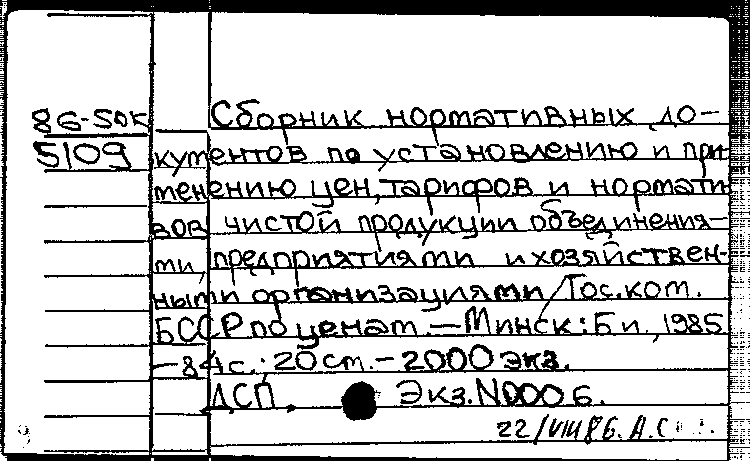 86-5ДК Сборник нормативных до-
5109 кументов по установлению и при
менению цен, тарифов и нормати
вов чистой продукции объединения-
ми, предприятиями и хозяйствен-
ными организациями / Гос. ком.
БССР по ценам. — Минск: Б. и., 1985
— 84 с.; 20 см. — 2000 экз.
ДСП. Экз. N0006.
22/VIII 86. А.С